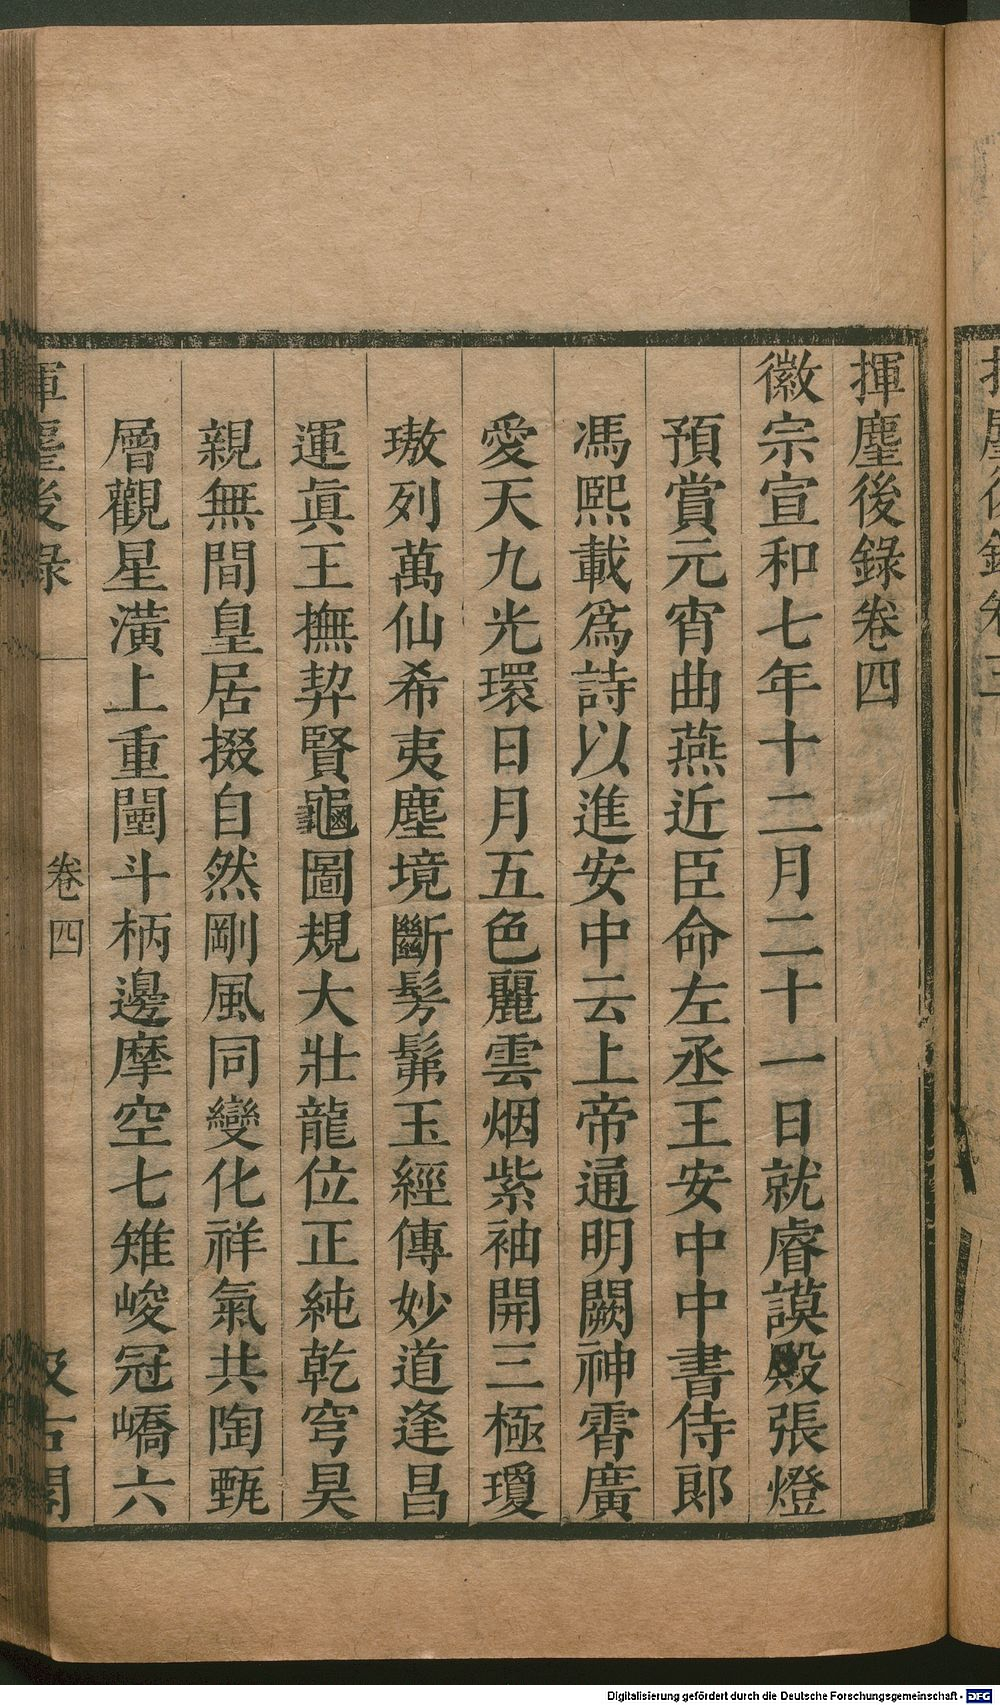 揮麈後錄卷四
徽宗宣和七年十二月二十一日就睿謨殿張燈
預賞元宵曲燕近臣命左丞王安中中書侍郎
馮熙載爲詩以進安中云上帝通明闕神霄廣
愛天九光環日月五色麗雲烟紫袖開三極瓊
璈列萬仙希夷塵境斷髣髴玉經傳妙道逢昌
運眞王撫契賢龜圖規大壯龍位正純乾穹昊
親無間皇居掇自然剛風同變化祥氣共陶甄
層觀星潢上重闉斗柄邊摩空七雉峻冠嶠六
揮麈後錄
卷四
汲古閣
Digitalisierung gefördert durch die Deutsche Forschungsgemeinschaft - DFG